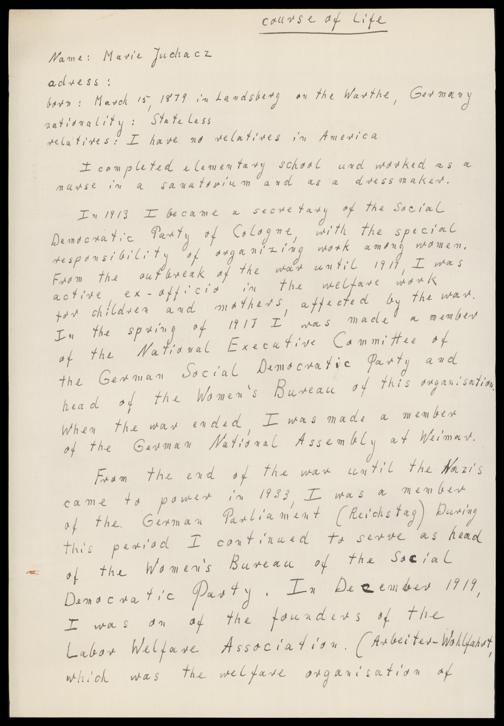 course of life
Name: Marie Juchacz
adress:
born: March 15, 1879 in Landsberg on the Warthe, Germany
nationality: Stateless
relatives: I have no relatives in America
I completed elementary school und worked as a
nurse in a sanatorium and as a dressmaker.
In 1913 I became a secretary of the Social
Democratic Party of Cologne, with the special
responsibility of organizing work among women.
From the outbreak of the war until 1917, I was
active, ex-officio in the welfare work
for children and mothers, affected by the war.
In the spring of 1917 I was made a member
of the National Executive Committee of
the German Social Democratic Party and
head of the Women's Bureau of this organisation.
When the war ended, I was made a member
of the German National Assembly at Weimar.
From the end of the war until the Nazis
came to power in 1933, I was a member
of the German Parliament (Reichstag) During
this period I continued to serve as head
of the Women's Bureau of the Social
Democratic Party. In December 1919,
I was on of the founders of the
Labor Welfare Association. (Arbeiter-Wohlfahrt,
which was the welfare organisation of